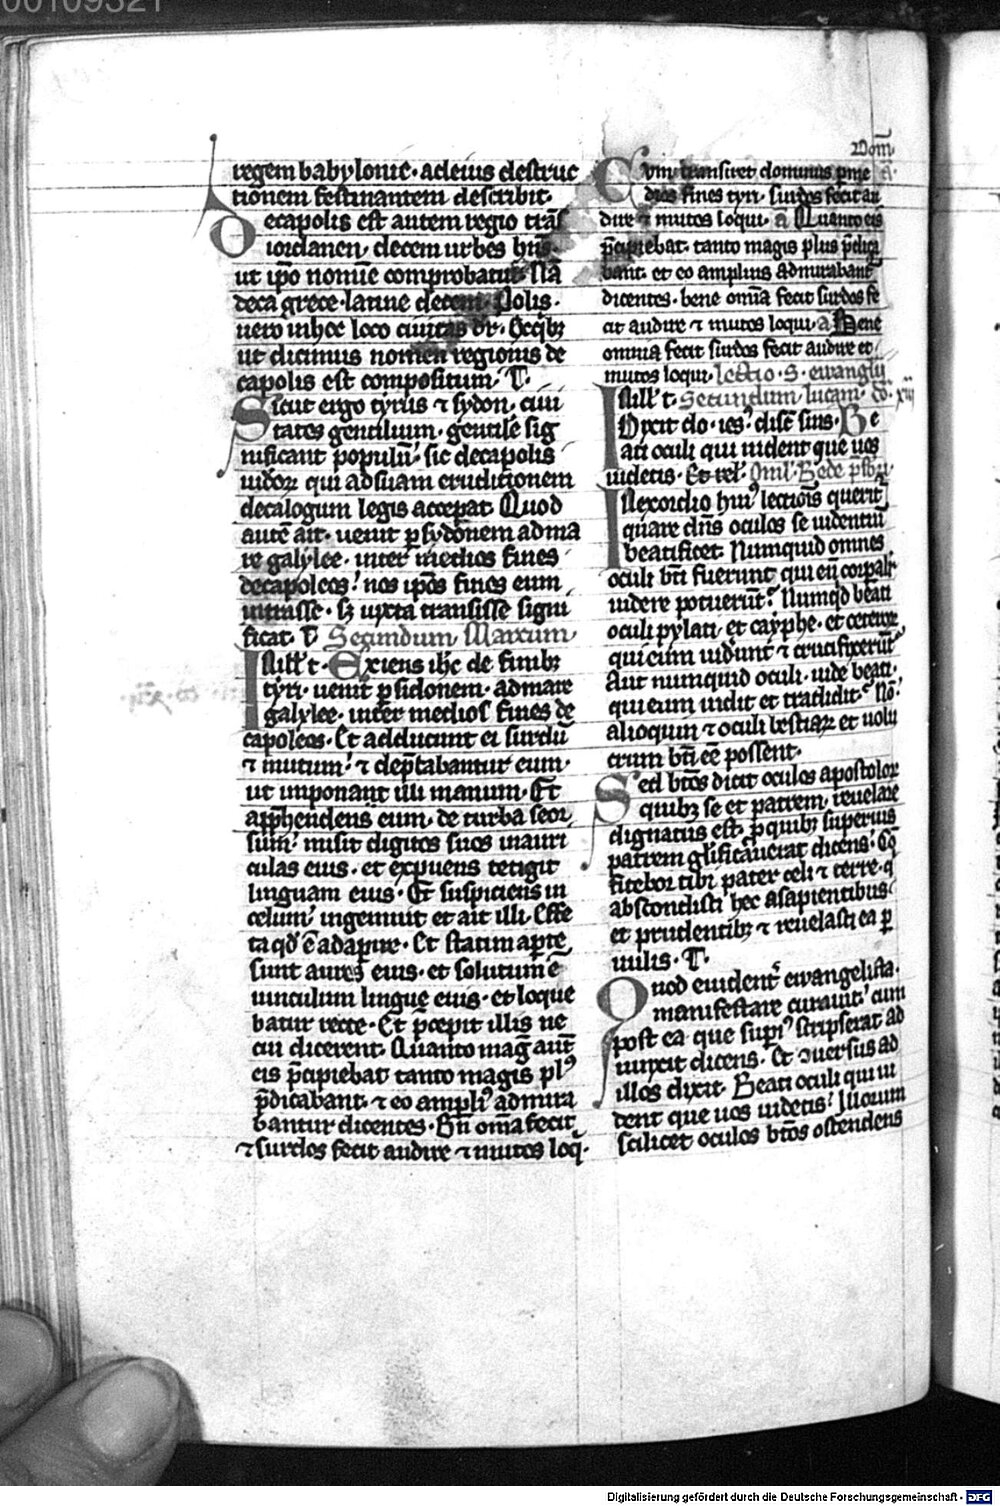 00109321
regem babylonie· ac leius destruc
tionem festinantem describit·
Decapolis est autem regio trās
iordanen, decem urbes hn̄s·
ut ip̄o nomine comprobatur· Nā
deca grece· latine decem· Polis·
vero in hoc loco civitas dr̄· Ex qͥbꝫ
ut dicimus nomen regionis de
capolis est compositum· T·
Sicut ergo tyrus ⁊ sydon, civi
tates gentilium· gentile sig
nificant populū· sic decapolis
iudeoꝝ qui ad suam eruditionem
decalogum legis accepat· Quod
autē ait· venit ꝑ sydonem ad ma
re galylee· inter medios fines
decapoleos! nos ip̄os fines eum
intrasse· sꝫ iuxta transisse signi
ficat· T̄ Secundum Marcum·
In ill' t· Exiens ih̄c de finibꝫ
tyri· venit ꝑ sidonem· ad mare
galylee· inter medios fines de
capoleos· Et adducunt ei surdū
⁊ mutum! ⁊ dep̄cabantur eum·
ut imponant illi manum· Et
app̄hendens eum· de turba seor
sum! misit digitos suos in auri
culas eius· et expuens tetigit
linguam eius· Et suspiciens in
celum! ingemuit et ait illi· Effe
ta qd̄ ē adaꝑire· Et statim aꝑte
sunt aures eius· et solutum ē
vinculum lingue eius· et loque
batur recte· Et p̄cepit illis ne
cui dicerent· Quanto mag̃ aut̄
eis p̄cipiebat tanto magis plꝰ
p̄dicabant· ⁊ eo ampliꝰ admira
bantur dicentes· Bn̄ om̄a fecit
⁊ surdos fecit audire ⁊ mutos loq̄·
Dom̄
Cum transiret dominus
fines tyri· surdos fecit au
dire ⁊ mutos loqui· a Quanto eis
p̄cipiebat· tanto magis plus p̄dica
bant· et eo amplius admirabant̄
dicentes· bene om̄ia fecit surdos fe
cit audire ⁊ mutos loqui· a Bene
omnia fecit surdos fecit audire et
mutos loqui· lectio· S· ewanglii
In ill' t· Secundum lucam· co· xiii
Dixit do· ies· disc̄ suis· Be
ati oculi qui vident que vos
videtis· Et rel· Oml' Bede p̄sbri·
In exordio huiꝰ lectionis querit̄
quare dn̄s oculos se videntiū
beatificet· Numquid omnes
oculi bt̄i fuerunt qui eū corpalit̄
videre potuerūt? Numqͥd beati
oculi pylati, et cayphe· et ceteroꝝ
qui eum viderunt ⁊ crucifixerūt
Aut numquid oculi· iude beati·
qui eum vidit et tradidit? Nō·
alioquin ⁊ oculi bestiaꝝ et volu
crum bt̄i eē possent·
Sed bt̄os dicit oculos apostoloꝝ
quibꝫ se et patrem, revelare
dignatus est· ꝑ quibꝫ superius
patrem glificaverat dicens· Cō
fitebor tibi pater celi ⁊ terre· q̄
abscondisti hec a sapientibus·
et prudentibꝫ ⁊ revelasti ea ꝑ
vulis· T·
Quod evident̄ ewangelista·
manifestare curavit! cum
post ea que supiꝰ scripserat ad
iunxit dicens· Et ꝯversus ad
illos dixit· Beati oculi qui vi
dent que vos videtis! Illorum
scilicet oculos bt̄os ostendens
Digitalisierung gefördert durch die Deutsche Forschungsgemeinschaft - DFG